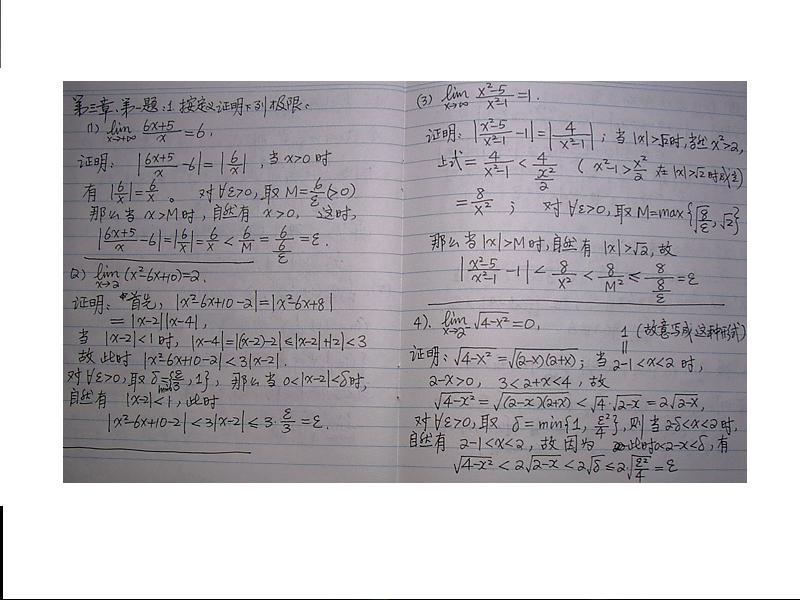 第三章、第一题:1.按定义证明下列极限:
(1) lim x→+∞ (6x+5)/x = 6.
证明: |(6x+5)/x - 6| = |6/x|, 当 x>0 时
有 |6/x| = 6/x 。 对∀ε>0, 取 M = 6/ε (>0)
那么当 x>M 时, 自然有 x>0, 这时,
|(6x+5)/x - 6| = |6/x| = 6/x < 6/M = 6/(6/ε) = ε.
(2) lim x→2 (x²-6x+10) = 2.
证明: 首先, |x²-6x+10-2| = |x²-6x+8|
= |x-2||x-4|,
当 |x-2|<1 时, |x-4| = |(x-2)-2| ≤ |x-2|+|2| < 3
故此时 |x²-6x+10-2| < 3|x-2|.
对∀ε>0, 取 δ=min{ε/3, 1}, 那么当 0<|x-2|<δ时,
自然有 |x-2|<1, 此时
|x²-6x+10-2| < 3|x-2| ≤ 3·ε/3 = ε.
(3) lim x→∞ (x²-5)/(x²-1) = 1.
证明: |(x²-5)/(x²-1) - 1| = |4/(x²-1)| ; 当 |x|>√2时, 当然 x²>2,
上式 = 4/(x²-1) < 4/(x²/2) ( x²-1 > x²/2 在 |x|>√2 时成立)
= 8/x² ; 对∀ε>0, 取 M = max{√(8/ε), √2}
那么当 |x|>M时, 自然有 |x|>√2, 故
|(x²-5)/(x²-1) - 1| < 8/x² < 8/M² ≤ 8/(8/ε) = ε
4). lim x→2⁻ √(4-x²) = 0.
1 (故意写成这种形式)
证明: √(4-x²) = √((2-x)(2+x)) ; 当 2-1<x<2 时,
2-x>0, 3<2+x<4, 故
√(4-x²) = √((2-x)(2+x)) < √4·√(2-x) = 2√(2-x),
对∀ε>0, 取 δ = min{1, ε²/4}, 则当 2-δ<x<2时,
自然有 2-1<x<2, 故因为 此时0<2-x<δ, 有
√(4-x²) < 2√(2-x) < 2√δ ≤ 2·√(ε²/4) = ε